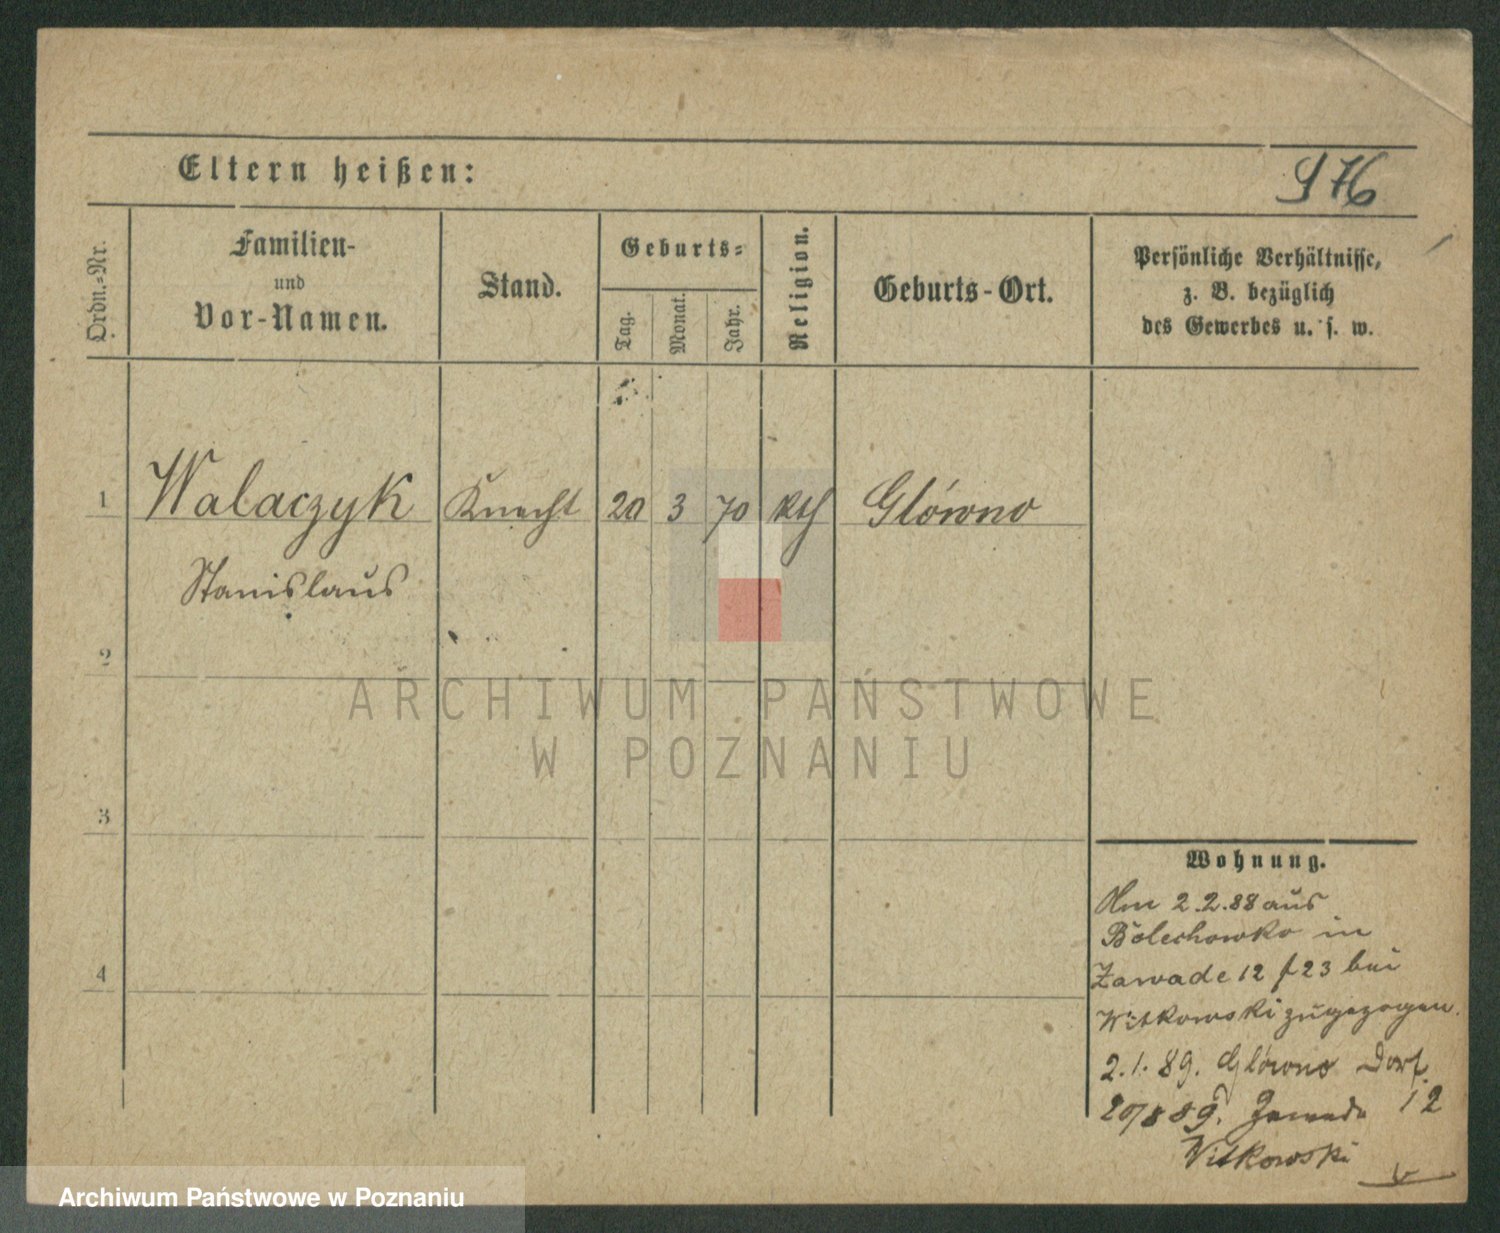 Eltern heißen:
976
Ordn.-Nr.
Familien-
und
Vor-Namen.
Stand.
Geburts-
Tag.
Monat.
Jahr.
Religion.
Geburts-Ort.
Persönliche Verhältnisse,
z. B. bezüglich
des Gewerbes u. s. w.
1 Walaczyk Knecht 20 3 70 kth Glówno
Stanislaus
2
3
4
Wohnung.
Am 2.2.88 aus
Bolechowko in
Zawade 12 f 23 bei
Witkowski zugezogen.
2.1.89. Glówno Dorf.
20/8 89. Zawade 12
Witkowski
ARCHIWUM PAŃSTWOWE
W POZNANIU
Archiwum Państwowe w Poznaniu